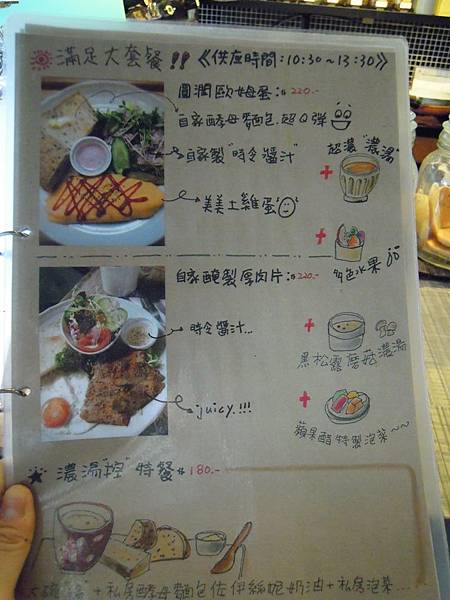 滿足大套餐!!《供應時間:10:30~13:30》
圓潤歐姆蛋:$220.-
自家酵母麵包.超Q彈
自家製"時令醬汁"
超濃"濃湯"
+
美美土雞蛋
+
多色水果
自家醃製厚肉片:$220.-
+
時令醬汁...
黑松露蘑菇濃湯
+
juicy.!!!
蘋果醋特製泡菜~~
★濃湯"控"特餐$180.-
+私房酵母麵包佐伊絲妮奶油+私房泡菜...